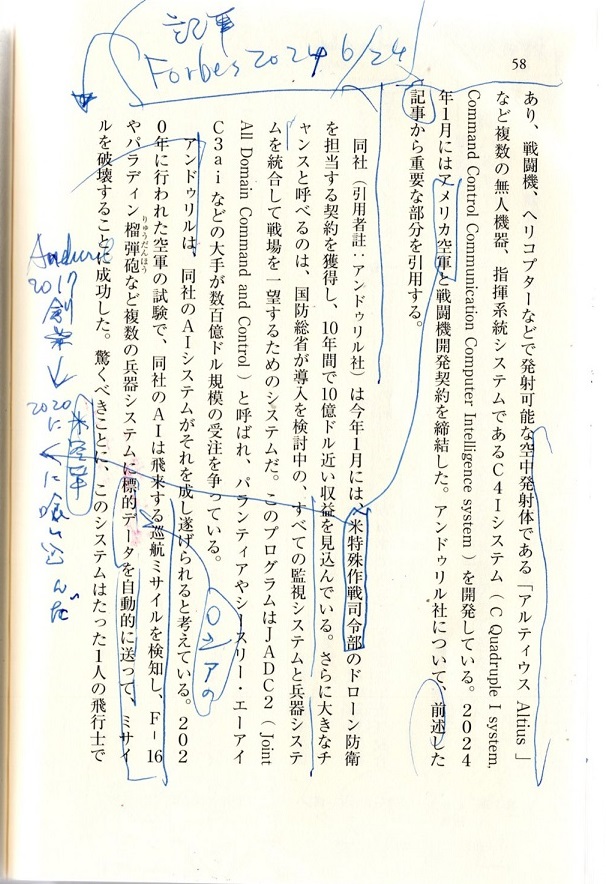 58
あり、戦闘機、ヘリコプターなどで発射可能な空中発射体である「アルティウス Altius」
など複数の無人機器、指揮系統システムであるＣ４Ｉシステム（C Quadruple I system,
Command Control Communication Computer Intelligence system）を開発している。２０２４
年１月にはアメリカ空軍と戦闘機開発契約を締結した。アンドゥリル社について、前述した
記事から重要な部分を引用する。
同社（引用者註：アンドゥリル社）は今年１月には米特殊作戦司令部のドローン防衛
を担当する契約を獲得し、10年間で10億ドル近い収益を見込んでいる。さらに大きなチ
ャンスと呼べるのは、国防総省が導入を検討中の、すべての監視システムと兵器システ
ムを統合して戦場を一望するためのシステムだ。このプログラムはＪＡＤＣ２（Joint
All Domain Command and Control）と呼ばれ、パランティアやシースリー・エーアイ
Ｃ３ａｉなどの大手が数百億ドル規模の受注を争っている。
アンドゥリルは、同社のＡＩシステムがそれを成し遂げられると考えている。２０２
０年に行われた空軍の試験で、同社のＡＩは飛来する巡航ミサイルを検知し、Ｆ－16
やパラディン榴弾砲りゅうだんほうなど複数の兵器システムに標的データを自動的に送って、ミサイ
ルを破壊することに成功した。驚くべきことに、このシステムはたった１人の飛行士で
記事
Forbes 2024 6/24
ロシアの
Anduril
2017
創業
↓
2020
に
米空軍
に喰い込んだ